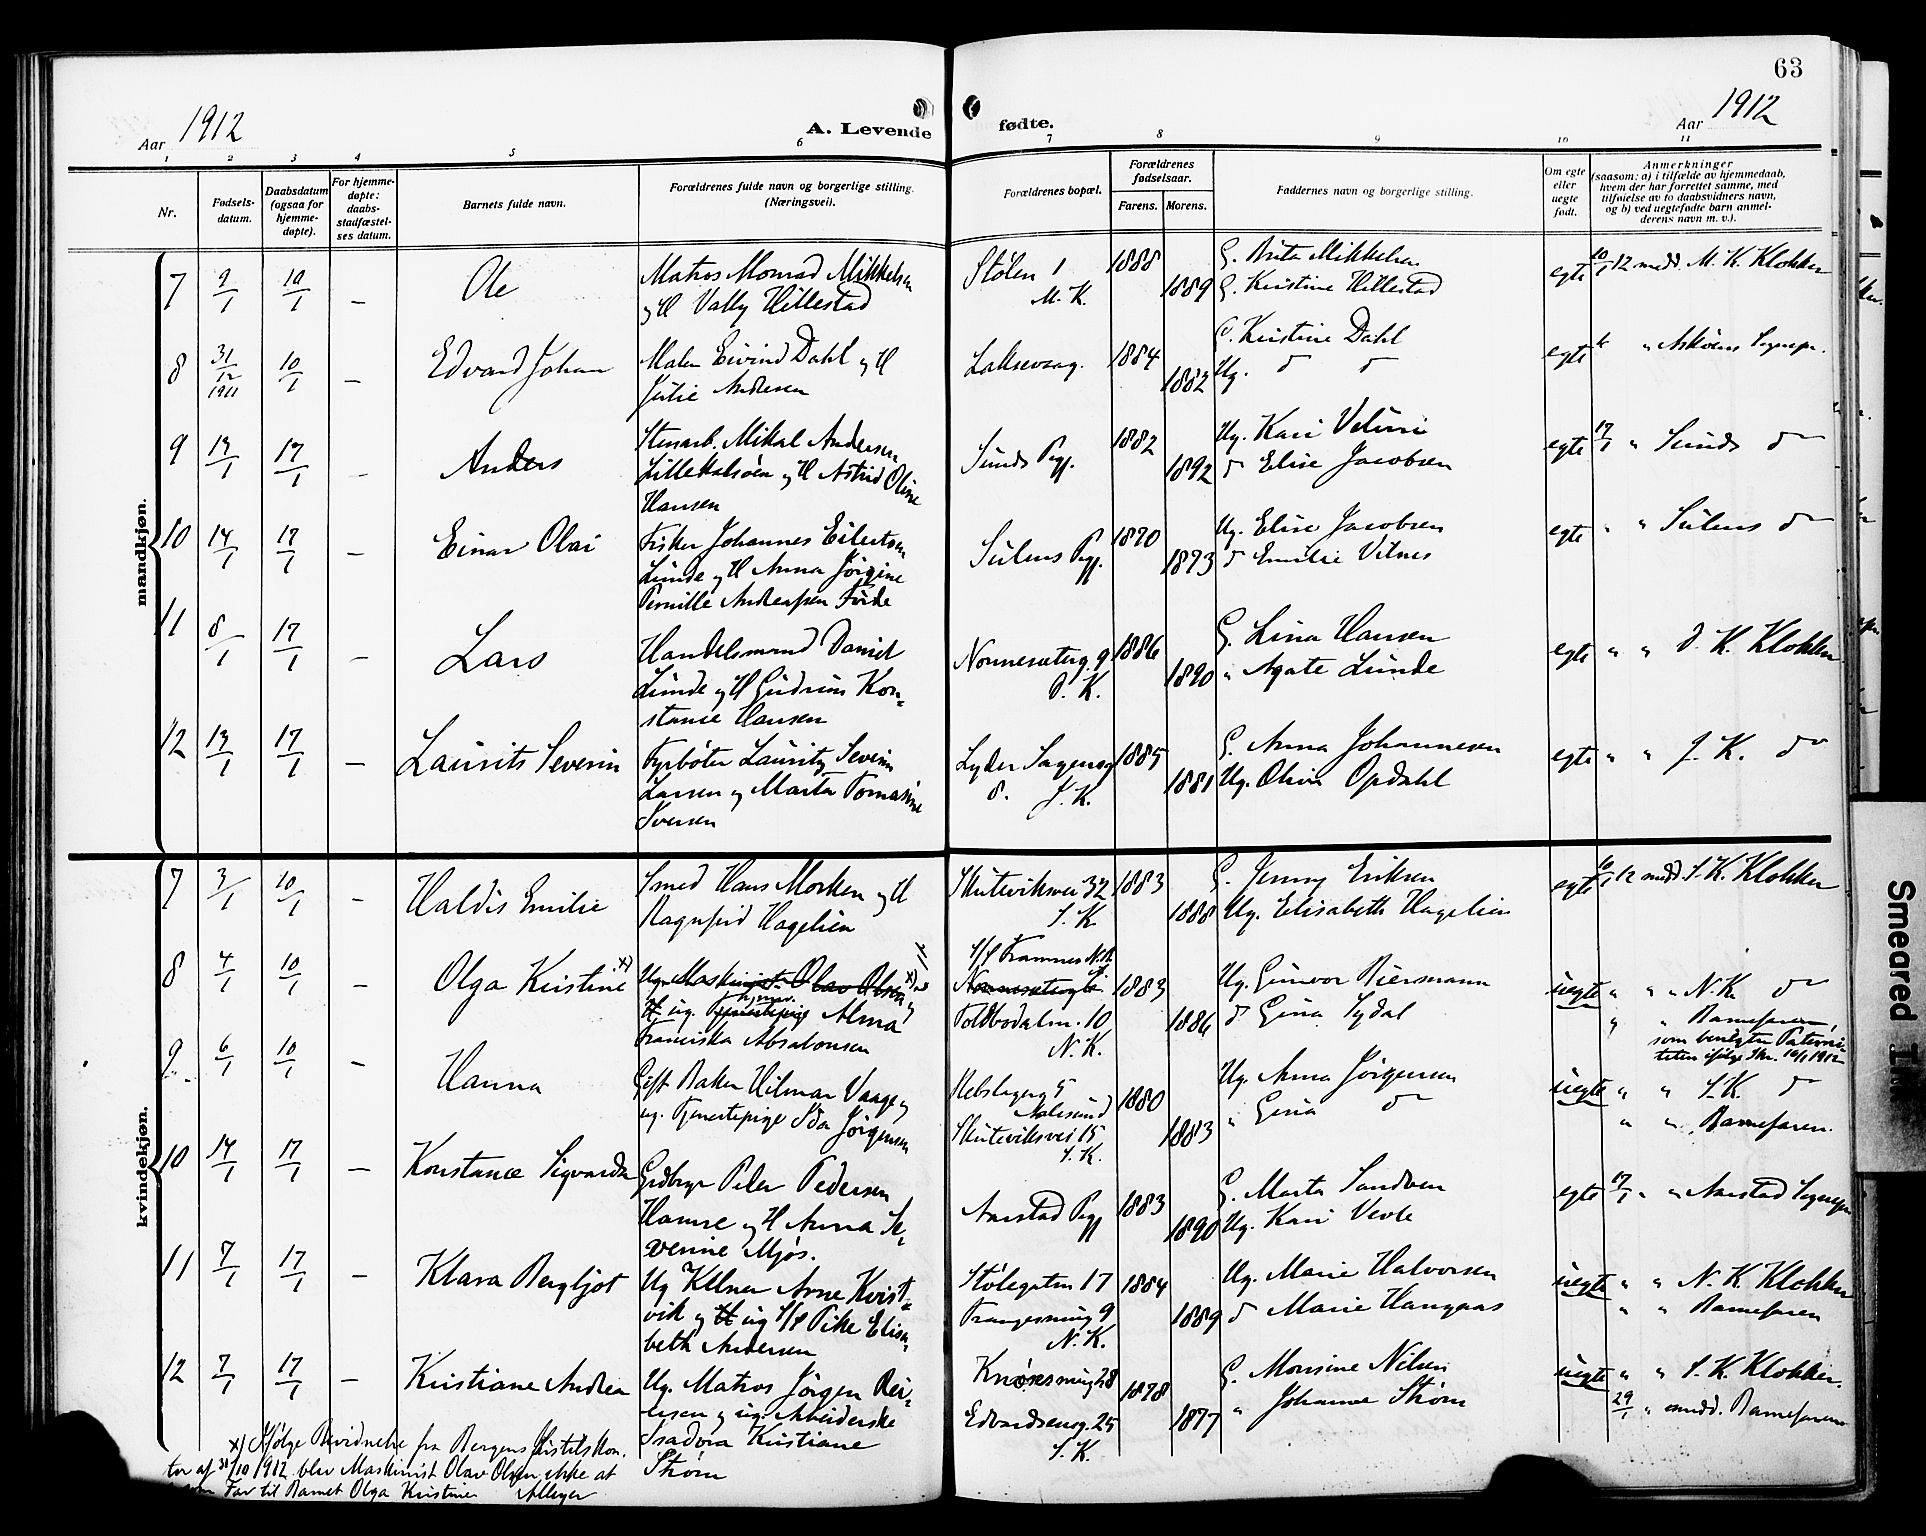 63
Aar 1912
A. Levende
fødte.
Aar 1912
1 2 3 4 5 6 7 8 9 10 11
Nr.
Fødsels-
datum.
Daabsdatum
(ogsaa for
hjemme-
døpte).
For hjemme-
døpte:
daabs-
stadfæstel-
ses datum.
Barnets fulde navn.
Forældrenes fulde navn og borgerlige stilling.
(Næringsvei).
Forældrenes bopæl.
Forældrenes
fødselsaar.
Farens. Morens.
Faddernes navn og borgerlige stilling.
Om egte
eller
uegte
født.
Anmerkninger
(saasom: a) i tilfælde av hjemmedaab,
hvem der har forrettet samme, med
tilføielse av to daabsvidners navn,
og b) ved uegtefødte barn anmel-
derens navn m. v.).
mandkjøn.
7 9/1 10/1 – Ole
Matros Monrad Mikkelsen
og H Vally Hillestad
Stølen 1
M. K.
1888 1889
G. Brita Mikkelsen
G. Kristine Hillestad
egte 10/1 12 medd. M. K. Klokker
8 31/12 1911 10/1 – Edvard Johan
Maler Eivind Dahl og H
Julie Andersen
Laksevaag. 1884 1882
G. Kristine Dahl
Ug. d d
egte " Askøens Sognepr.
9 17/1 – Anders
Stenarb. Mikal Andersen
Lillekalsøen og H Astrid Oline
Hansen
Sunds Pgj. 1882 1892
Ug. Kari
d Elise Jacobsen
egte 17/1 " Sunds d
10 14/1 17/1 – Einar Olai
Fisker Johannes Eilertsen
Lunde og H Anna Jørgine
Pernille Andreassen Førde
Sulens Pgj. 1870 1873
Ug. Elise Jacobsen
d Emilie Vitnes
egte " " Sulens d
11 8/1 17/1 – Lars
Handelsmand Daniel
Lunde og H Gudrun Kon-
stance Hansen
Nonneseterg. 9
D. K.
1886 1890
G. Lina Hansen
" Agate Lunde
egte " " D. K. Klokker
12 13/1 17/1 – Laurits Severin
Fyrbøter Laurits Severin
Larsen og Marta Tomasine
Iversen
Lyder Sagensg
8. J. K.
1885 1881
G. Anna Johannesen
Ug. Olivia Opdahl
egte " " J. K. d
kvindekjøn.
7 3/1 10/1 – Haldis Emilie
Smed Hans Morken og H
Ragnfrid Hagelien
Skuteviksvei 32
S. K.
1883 1888
G. Jenny Eriksen
Ug. Elisabeth Hagelien
egte 10/1 12 medd. S. K. Klokker
8 4/1 10/1 – Olga Kristine x)
Ug. Maskinist Olav Olsen x) og
H ug. Tjenestepige Alma
Franciska Absalonsen
S/S Framnes N.K.
Toldbodalm. 10
N. K.
1883 1886
Ug. Gunvor Biermann
d Gina Sydal
uegte " " N. K. d
" " Barnefaren,
som benegter Paterni-
teten ifølge Skr. 16/1 1912
9 6/1 10/1 – Hanna
Gift Baker Hilmar Vaage og
ug. Tjenestepige Ida Jørgensen
Rebslagerg 5
Aalesund
Skuteviksvei 15
S. K.
1880 1883
Ug. Anna Jørgensen
" Gina d
uegte " " S. K. d
" " Barnefaren.
10 14/1 17/1 – Konstance Sigvarda
Grdbrgr Peder Pedersen
Hamre og H Anna Se-
verine Mjøs.
Aarstad Pgj 1883 1890
G. Marta Sandven
Ug. Kari Vevle
egte 17/1 " " Aarstad Sognepr
11 7/1 17/1 – Klara Bergljot
Ug Kelner Arne Kvist-
vik og H ug S/S Pike Elisa-
beth Andersen
Stølegaten 17
Frangesmug 9
N. K.
1884 1889
Ug. Marie Halvorsen
d Marie Haugaas
uegte " " N. K. Klokker
" " Barnefaren
12 7/1 17/1 – Kristiane Andrea
Ug. Matros Jørgen Rei-
ersen og ug. Arbeiderske
Isadora Kristiane
Strøm
Knøsesmug 28
Edvardseng. 25
S. K.
1878 1877
G. Monsine Nilsen
" Johanne Strøm
uegte " " S. K. Klokker.
29/1 " medd. Barnefaren
x) Ifølge Bevidnelse fra Bergens Justitskon-
tor af 31/10 1912 blev Maskinist Olav Olsen ikke at
som Far til Barnet Olga Kristine
Smeared Ink